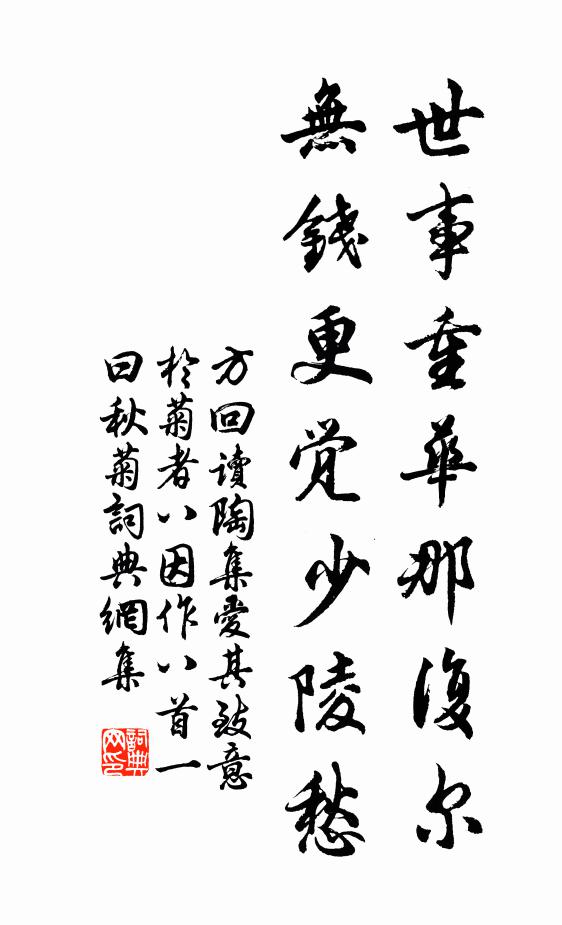 世事重華那復尔
無錢更覺少陵愁
方回讀陶集愛其致意
於菊者八因作八首一
曰秋菊詞典網集
詞典網印